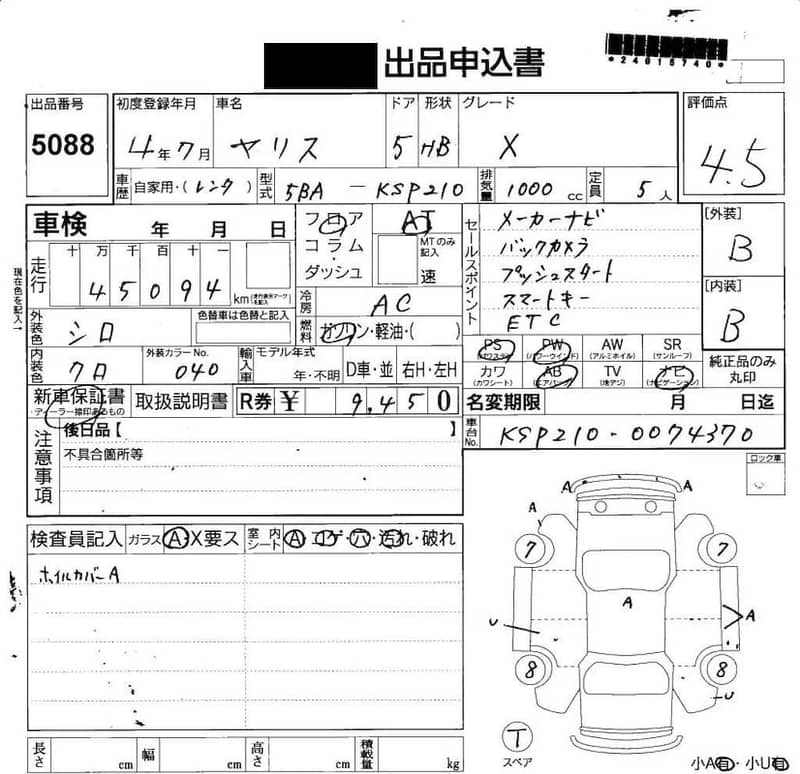 出品申込書
*24015740*
出品番号 初度登録年月 車名 ドア 形状 グレード 評価点
5088 4年7月 ヤリス 5 HB X 4.5
車歴 自家用・(レンタ) 型式 5BA - KSP210 排気量 1000 cc 定員 5 人
車検 年 月 日
フロア AT
コラム・ MTのみ記入
ダッシュ 速
セールスポイント
メーカーナビ
バックカメラ
プッシュスタート
スマートキー
ETC
[外装]
B
[内装]
B
現在色を記入→
走行 十 万 千 百 十 一
45094 km
冷房 AC
外装色 シロ 色替車は色替と記入
燃料 ガソリン・軽油・( )
内装色 クロ 外装カラーNo. 040 輸入車 モデル年式 年・不明 D車・並 右H・左H
PS (パワステ) PW (パワーウインド) AW (アルミホイル) SR (サンルーフ)
カワ (カワシート) AB (エアバック) TV (地デジ) ナビ (ナビゲーション)
純正品のみ丸印
新車保証書 ・ディーラー捺印あるもの 取扱説明書 R券 ¥ 9,450
名変期限 月 日迄
注意事項 後日品【 】
不具合箇所等
車台No. KSP210-0074370
ロック車
検査員記入 ガラス A・X要ス 室内シート A・コゲ・穴・汚れ・破れ
ホイルカバーA
A A
A
7 7
A A
U
8 8
U
T
スペア
小A有・小U有
長さ cm 幅 cm 高さ cm 積載量 kg